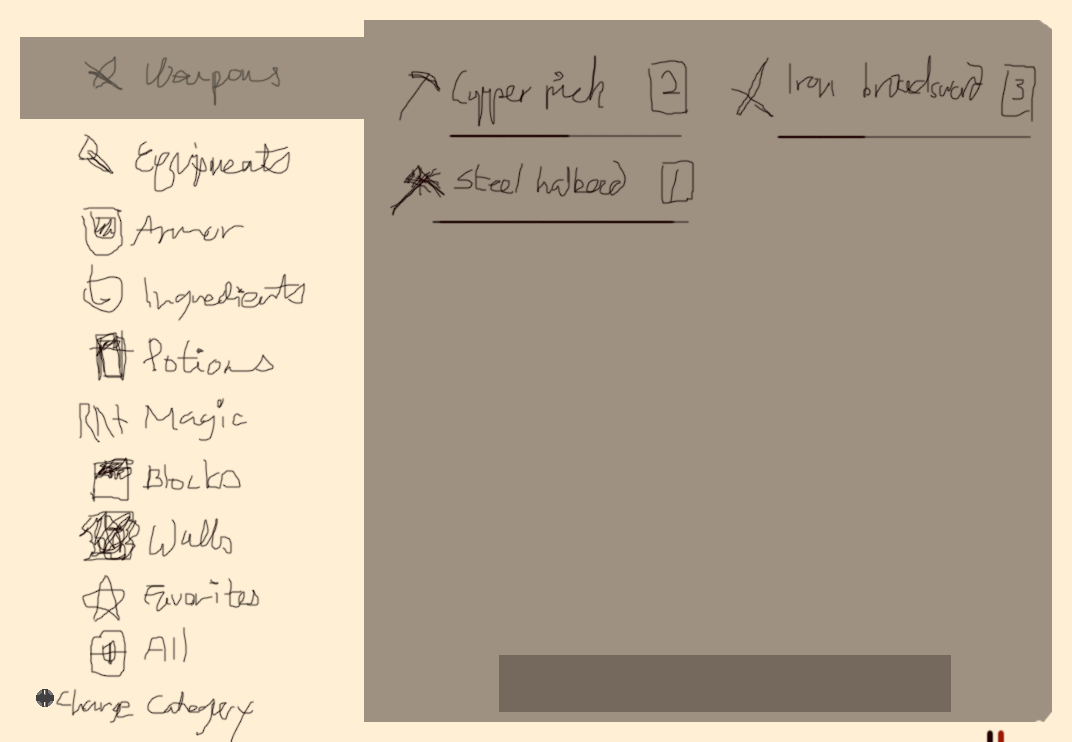 Weapons
Equipments
Armor
Ingredients
Potions
Magic
Blocks
Walls
Favorites
All
Change Category
Copper pick 2
Iron broadsword 3
Steel halberd 1